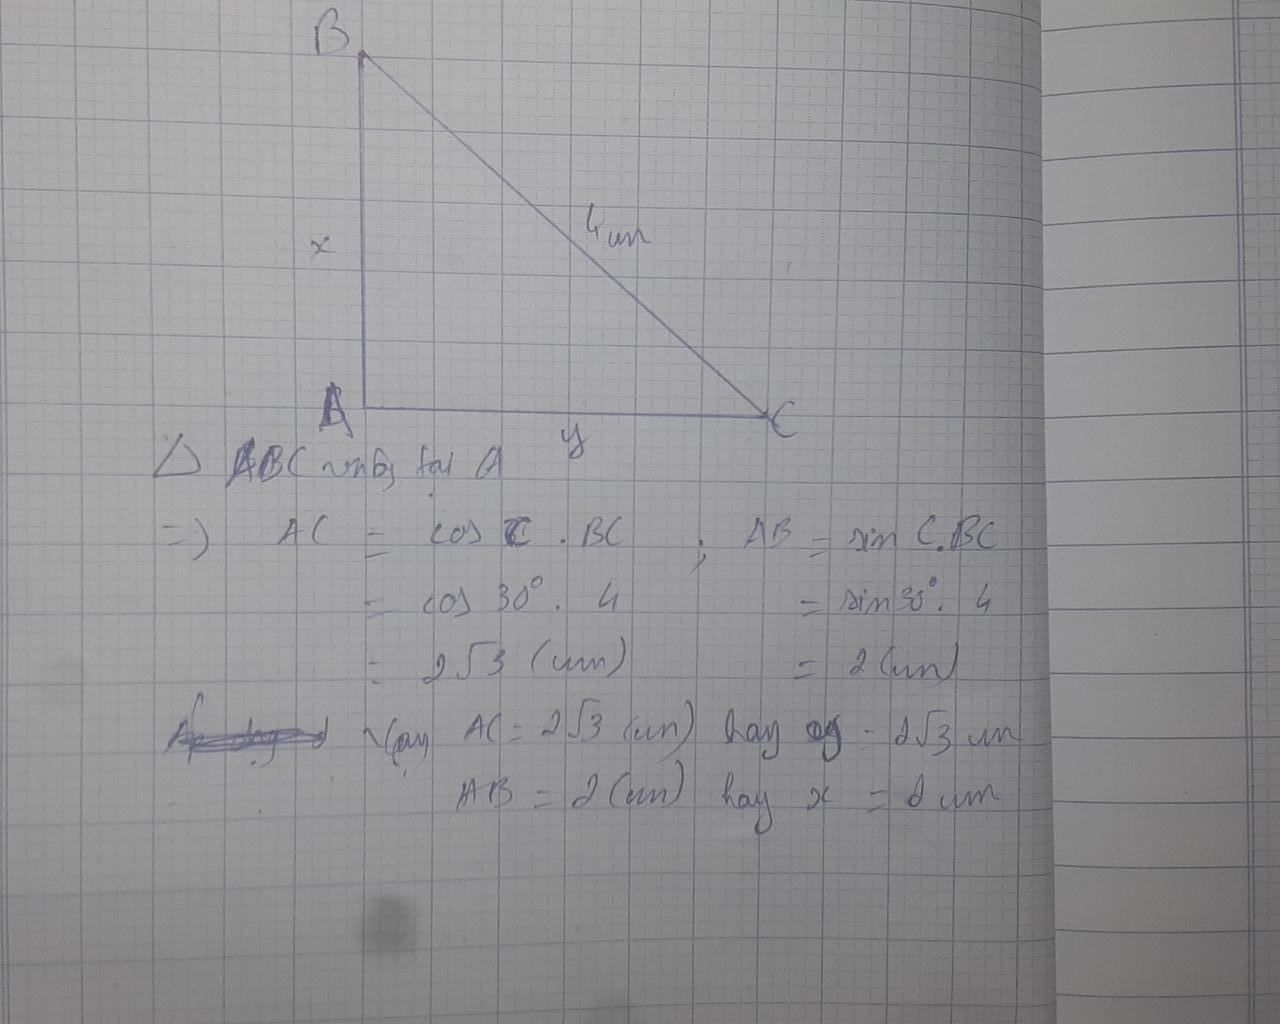 B
x
4 cm
A
C
y
△ ABC vuông tại A
=> AC = cos C . BC ; AB = sin C.BC
= cos 30° . 4 = sin 30° . 4
= 2√3 (cm) = 2 (cm)
Vậy AC = 2√3 (cm) hay y = 2√3 cm
AB = 2 (cm) hay x = 2 cm